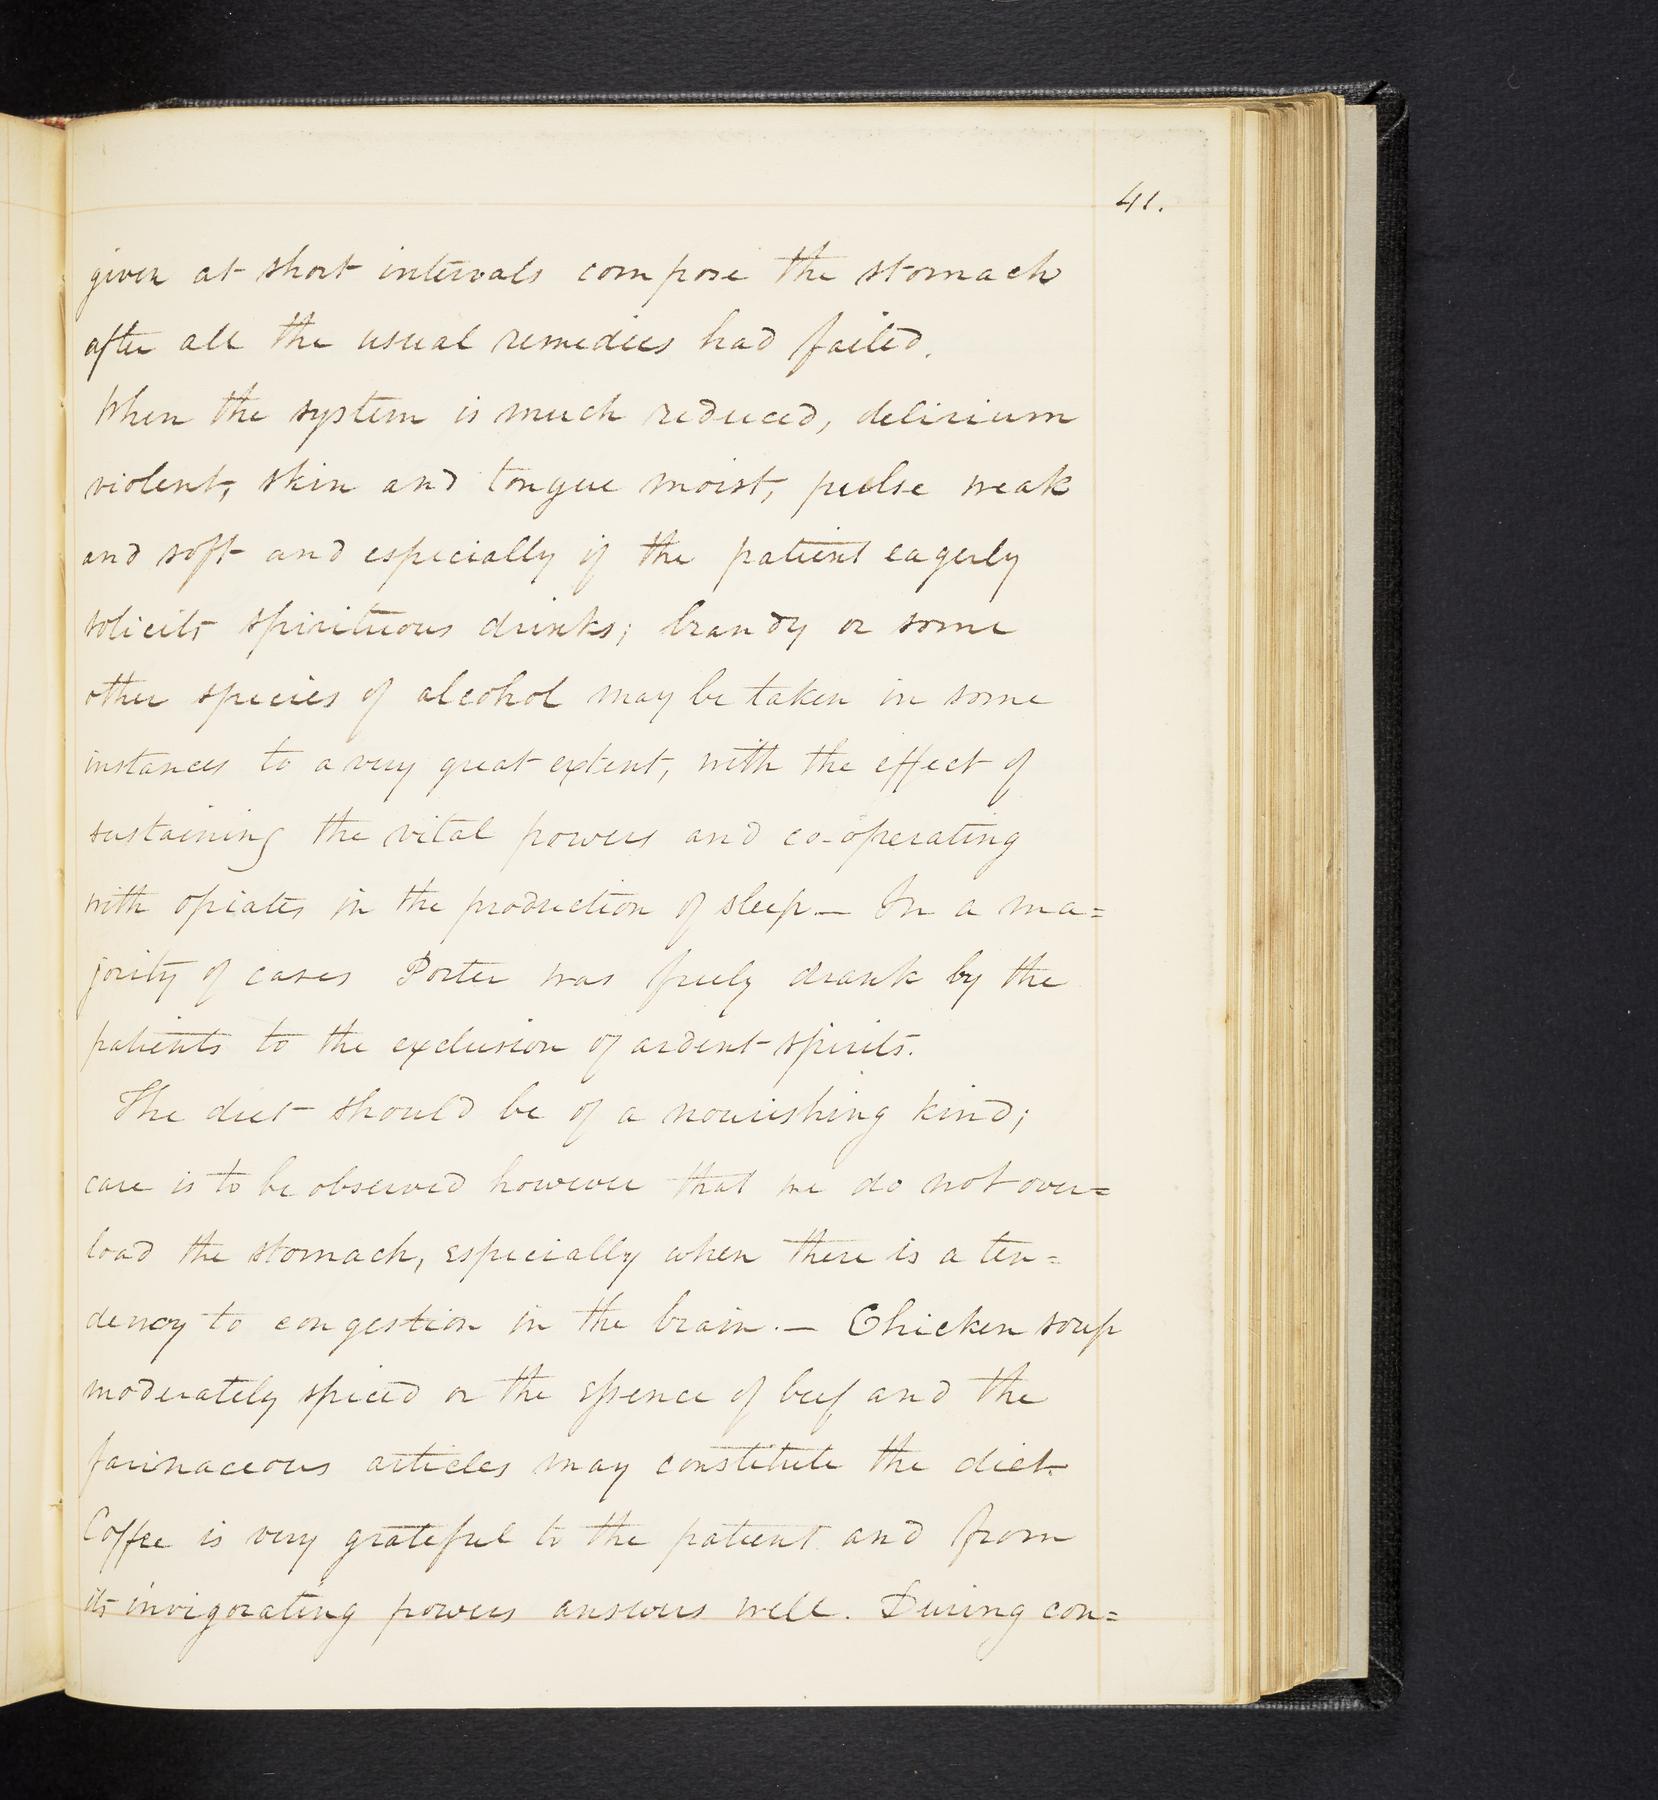 41.
given at short intervals compose the stomach
after all the usual remedies had failed.
When the system is much reduced, delirium
violent, skin and tongue moist, pulse weak
and soft and especially if the patient eagerly
solicits spirituous drinks; brandy or some
other species of alcohol may be taken in some
instances to a very great extent, with the effect of
sustaining the vital powers and co-operating
with opiates in the production of sleep — In a ma=
jority of cases Porter was freely drank by the
patients to the exclusion of ardent spirits.
The diet should be of a nourishing kind;
care is to be observed however that we do not over=
load the stomach, especially when there is a ten=
dency to congestion in the brain. — Chicken soup
moderately spiced or the essence of beef and the
farinaceous articles may constitute the diet.
Coffee is very grateful to the patient and from
its invigorating powers answers well. During con=